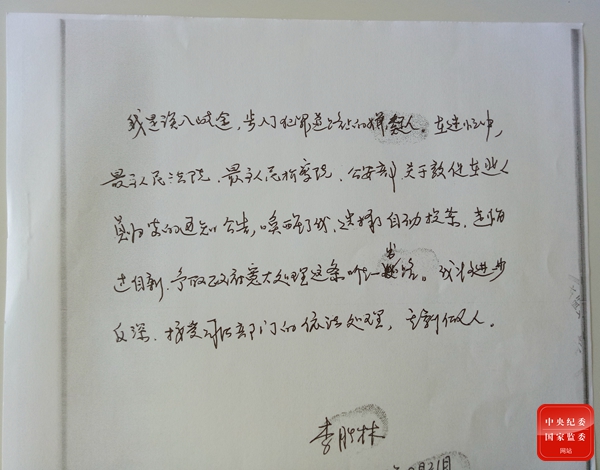 我是误入歧途,步入犯罪道路上的罪人。在迷惘中,
最高人民法院、最高人民检察院、公安部关于敦促在逃人
员归案的通知公告,唤醒了我,选择了自动投案,悔过
自新,争取政府宽大处理这条唯一出路。我将进一步
反深,接受司法部门的依法处理,重新做人。
李胜林
月21日
中央纪委
国家监委
网站